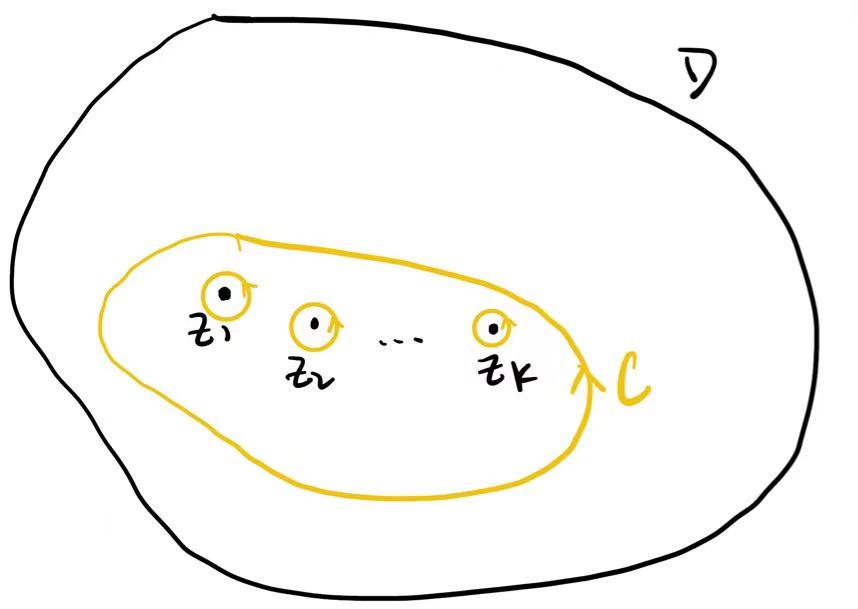 D
z₁
z₂
...
zₖ
C